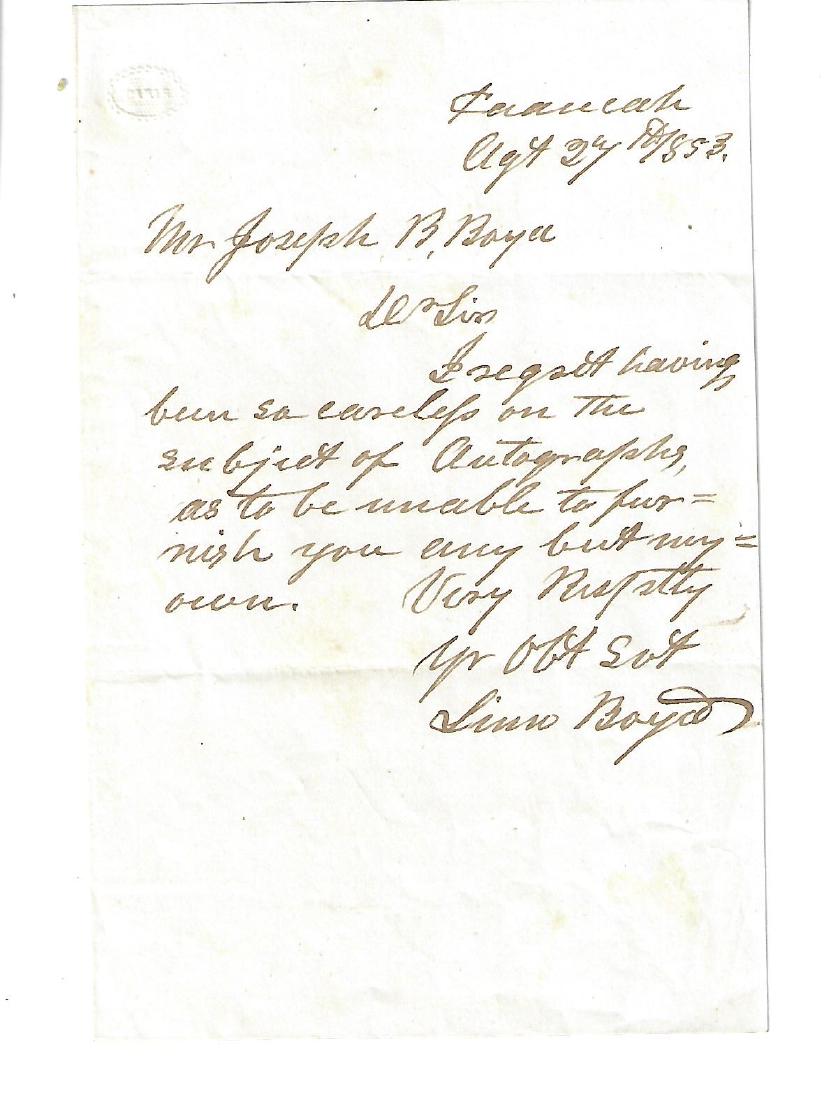 Paducah
Agt 27th 1853.
Mr Joseph B, Boyd
Dr Sir
I regret having
been so careless on the
subject of Autographs,
as to be unable to fur=
nish you any but my=
own. Very Respftly
Yr Obt Svt
Linn Boyd